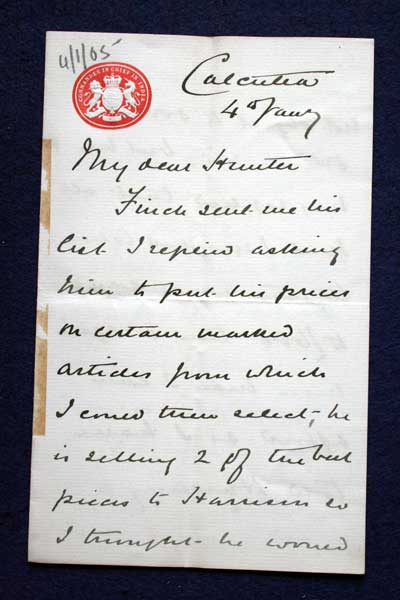 4/1/05
COMMANDER IN CHIEF IN INDIA
Calcutta
4th Jany
My dear Hunter
Finch sent me his
list I replied asking
him to put his prices
on certain marked
articles from which
I could then select, he
is selling 2 of the best
pieces to Harrison so
I thought he would